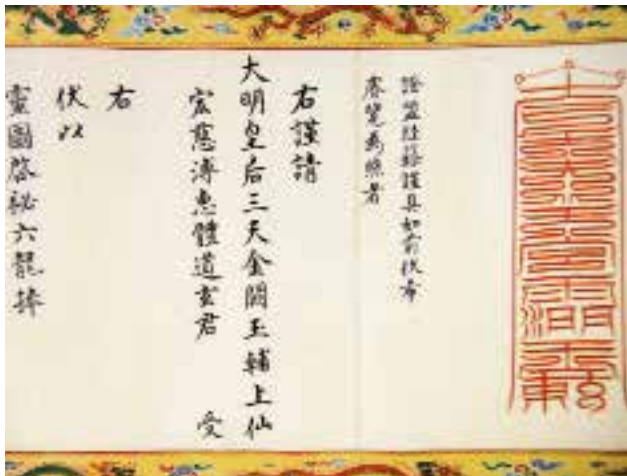 證盟陞籙謹具如前伏希
睿覽為照者
右謹請
大明皇后三天金闕玉輔上仙
宏慈溥惠體道玄君 受
右
伏以
靈圖啓祕六龍捧